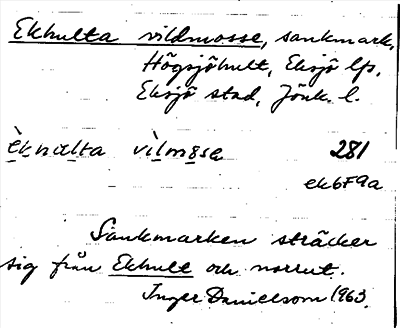 Ekhulta vildmosse, sankmark,
Högsjöhult, Eksjö lfs,
Eksjö stad, Jönk. l.
281
ek6F9a
Sankmarken sträcker
sig från Ekhult och norrut.
Inger Danielsom 1963.